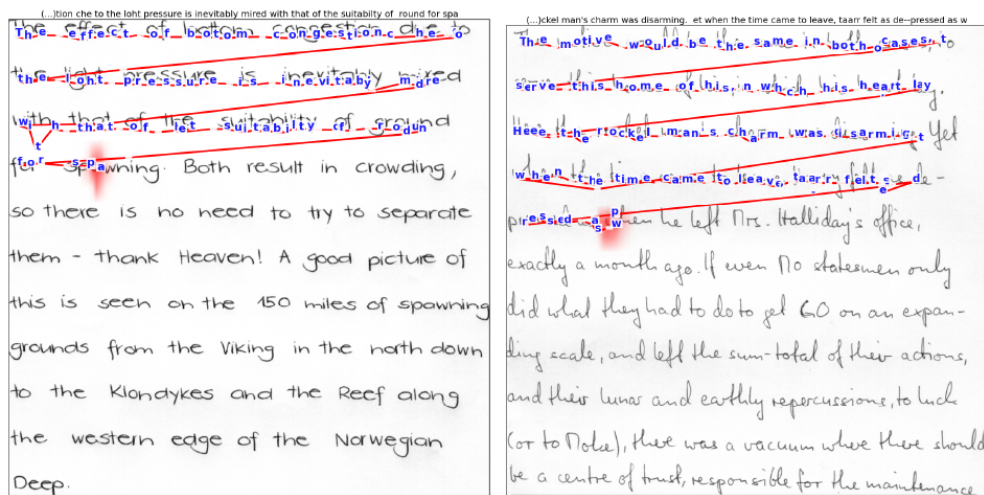 (...)tion che to the loht pressure is inevitably mired with that of the suitablity of round for spa
The effect of bottom congestion due to
the light pressure is inevitably mired
with that of the suitability of ground
for spawning. Both result in crowding,
so there is no need to try to separate
them - thank Heaven! A good picture of
this is seen on the 150 miles of spawning
grounds from the Viking in the north down
to the Klondykes and the Reef along
the western edge of the Norwegian
Deep.
(...)ckel man's charm was disarming. et when the time came to leave, taarr felt as de--pressed as w
The motive would be the same in both cases, to
serve this home of his, in which his heart lay.
Here the rocket man's charm was disarming. Yet
when the time came to leave, felt as de-
pressed as when he left Mrs. Halliday's office,
exactly a month ago. If even No statesmen only
did what they had to do to get GO on an expan-
ding scale, and left the sum-total of their actions,
and their lunar and earthly repercussions, to luck
(or to Moke), there was a vacuum where there should
be a centre of trust, responsible for the maintenance